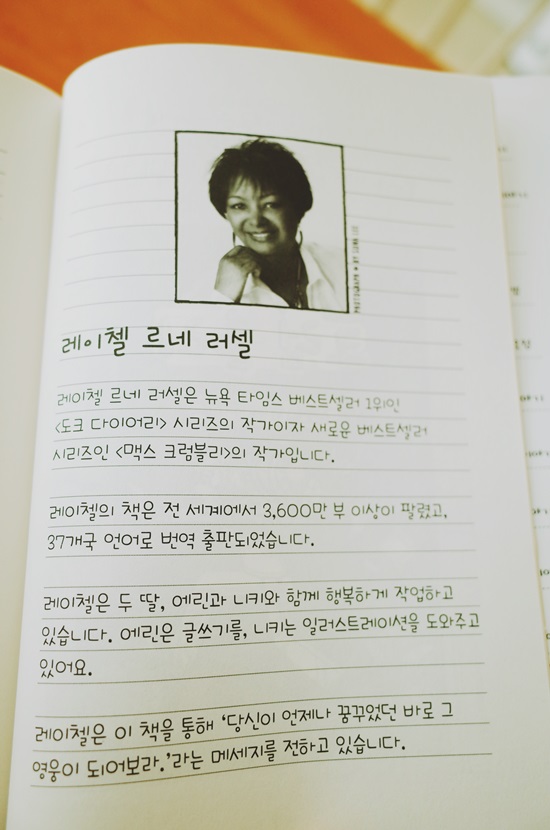 PHOTOGRAPH BY
레이첼 르네 러셀
레이첼 르네 러셀은 뉴욕 타임스 베스트셀러 1위인
<도크 다이어리> 시리즈의 작가이자 새로운 베스트셀러
시리즈인 <맥스 크럼블리>의 작가입니다.
레이첼의 책은 전 세계에서 3,600만 부 이상이 팔렸고,
37개국 언어로 번역 출판되었습니다.
레이첼은 두 딸, 에린과 니키와 함께 행복하게 작업하고
있습니다. 에린은 글쓰기를, 니키는 일러스트레이션을 도와주고
있어요.
레이첼은 이 책을 통해 '당신이 언제나 꿈꾸었던 바로 그
영웅이 되어보라.'라는 메세지를 전하고 있습니다.